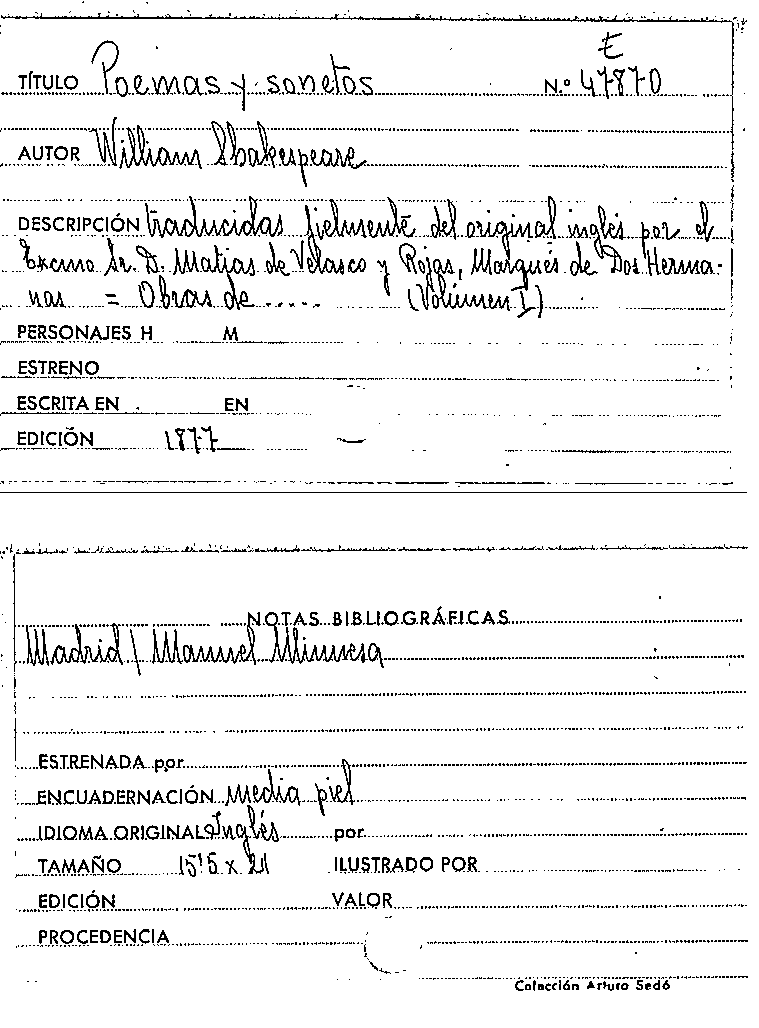 E
TÍTULO Poemas y sonetos N.º 47870
AUTOR William Shakespeare
DESCRIPCIÓN traducidas fielmente del original inglés por el
Excmo Sr. D. Matias de Velasco y Rojas, Marqués de Dos Herma-
nas = Obras de ..... (Volumen I)
PERSONAJES H M
ESTRENO
ESCRITA EN EN
EDICIÓN 1877
NOTAS BIBLIOGRÁFICAS
Madrid / Manuel Minuesa
ESTRENADA por
ENCUADERNACIÓN media piel
IDIOMA ORIGINAL Inglés por
TAMAÑO 15'5 x 21 ILUSTRADO POR
EDICIÓN VALOR
PROCEDENCIA
Colección Arturo Sedó